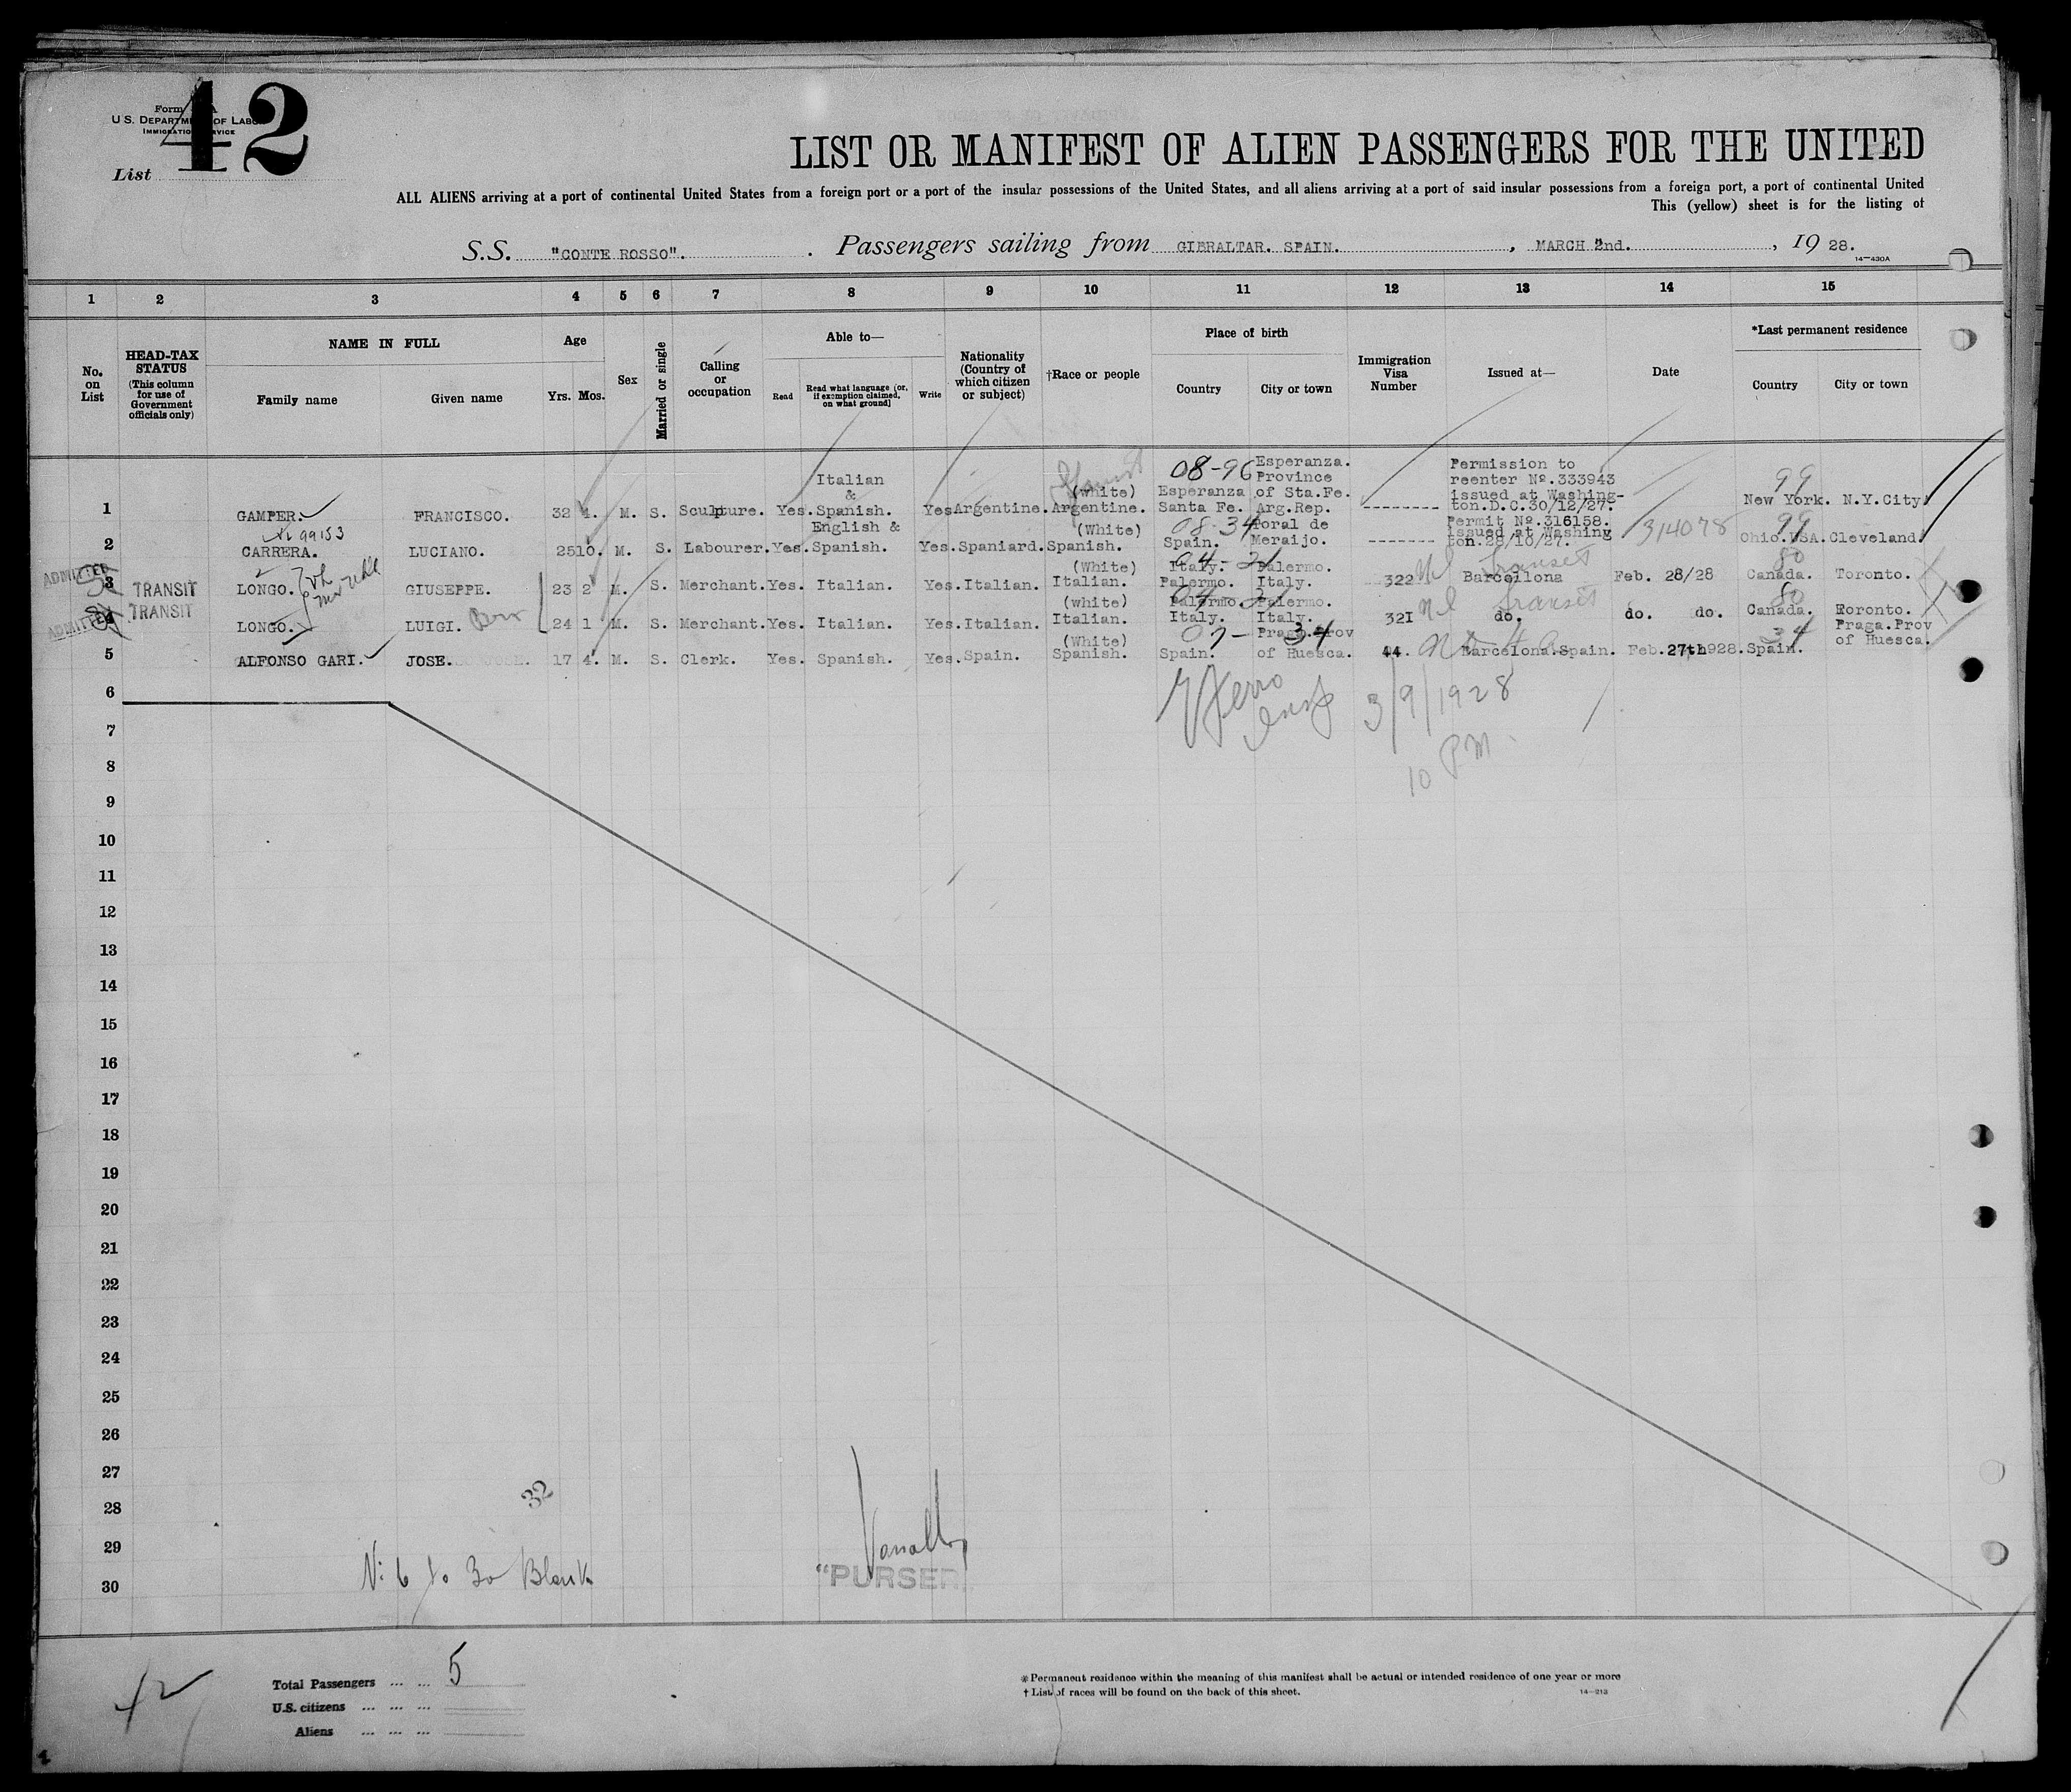 42
Form
U.S. DEPARTMENT OF LABOR
IMMIGRATION SERVICE
List
LIST OR MANIFEST OF ALIEN PASSENGERS FOR THE UNITED
ALL ALIENS arriving at a port of continental United States from a foreign port or a port of the insular possessions of the United States, and all aliens arriving at a port of said insular possessions from a foreign port, a port of continental United
This (yellow) sheet is for the listing of
S.S. "CONTE ROSSO". Passengers sailing from GIBRALTAR. SPAIN., MARCH 2nd., 1928.
14—430A
1 2 3 4 5 6 7 8 9 10 11 12 13 14 15
No. on List
HEAD-TAX STATUS (This column for use of Government officials only)
NAME IN FULL
Family name Given name
Age
Yrs. Mos.
Sex
Married or single
Calling or occupation
Able to—
Read Read what language (or, if exemption claimed, on what ground) Write
Nationality (Country of which citizen or subject)
†Race or people
Place of birth
Country City or town
Immigration Visa Number
Issued at—
Date
*Last permanent residence
Country City or town
1 GAMPER. FRANCISCO. 32 4. M. S. Sculpture. Yes. Italian & Spanish. Yes Argentine. (White) Argentine. 08-96 Esperanza Santa Fe. Esperanza. Province of Sta.Fe. Arg.Rep. -------- Permission to reenter No.333943 issued at Washington.D.C.30/12/27. 99 New York. N.Y.City.
99153
2 CARRERA. LUCIANO. 25 10. M. S. Labourer. Yes. English & Spanish. Yes. Spaniard. (White) Spanish. 08-34 Spain. Toral de Meraijo. ------- Permit No.316158. issued at Washington.28/10/27. 314078 99 Ohio.USA. Cleveland.
ADMITTED
3 TRANSIT LONGO. GIUSEPPE. 23 2 M. S. Merchant. Yes. Italian. Yes. Italian. (White) Italian. Italy. Palermo. Palermo. Italy. 322 Transit Barceilona Feb. 28/28 80 Canada. Toronto.
ADMITTED
4 TRANSIT LONGO. LUIGI. 24 1 M. S. Merchant. Yes. Italian. Yes. Italian. (white) Italian. Palermo. Italy. Palermo. Italy. 32I Transit do. do. do. 80 Canada. Toronto.
5 ALFONSO GARI. JOSE. 17 4. M. S. Clerk. Yes. Spanish. Yes. Spain. (White) Spanish. 07-34 Spain. Fraga.Prov of Huesca. 44. Barcelona.Spain. Feb.27th1928. 34 Spain. Fraga.Prov of Huesca.
3/9/1928
10 PM
6
7
8
9
10
11
12
13
14
15
16
17
18
19
20
21
22
23
24
25
26
27
28
29
30
32
N: 6 to 30 Blank
"PURSER"
42
Total Passengers ... ... 5
U.S. citizens ... ... ...
Aliens ... ... ...
* Permanent residence within the meaning of this manifest shall be actual or intended residence of one year or more
† List of races will be found on the back of this sheet.
14—213